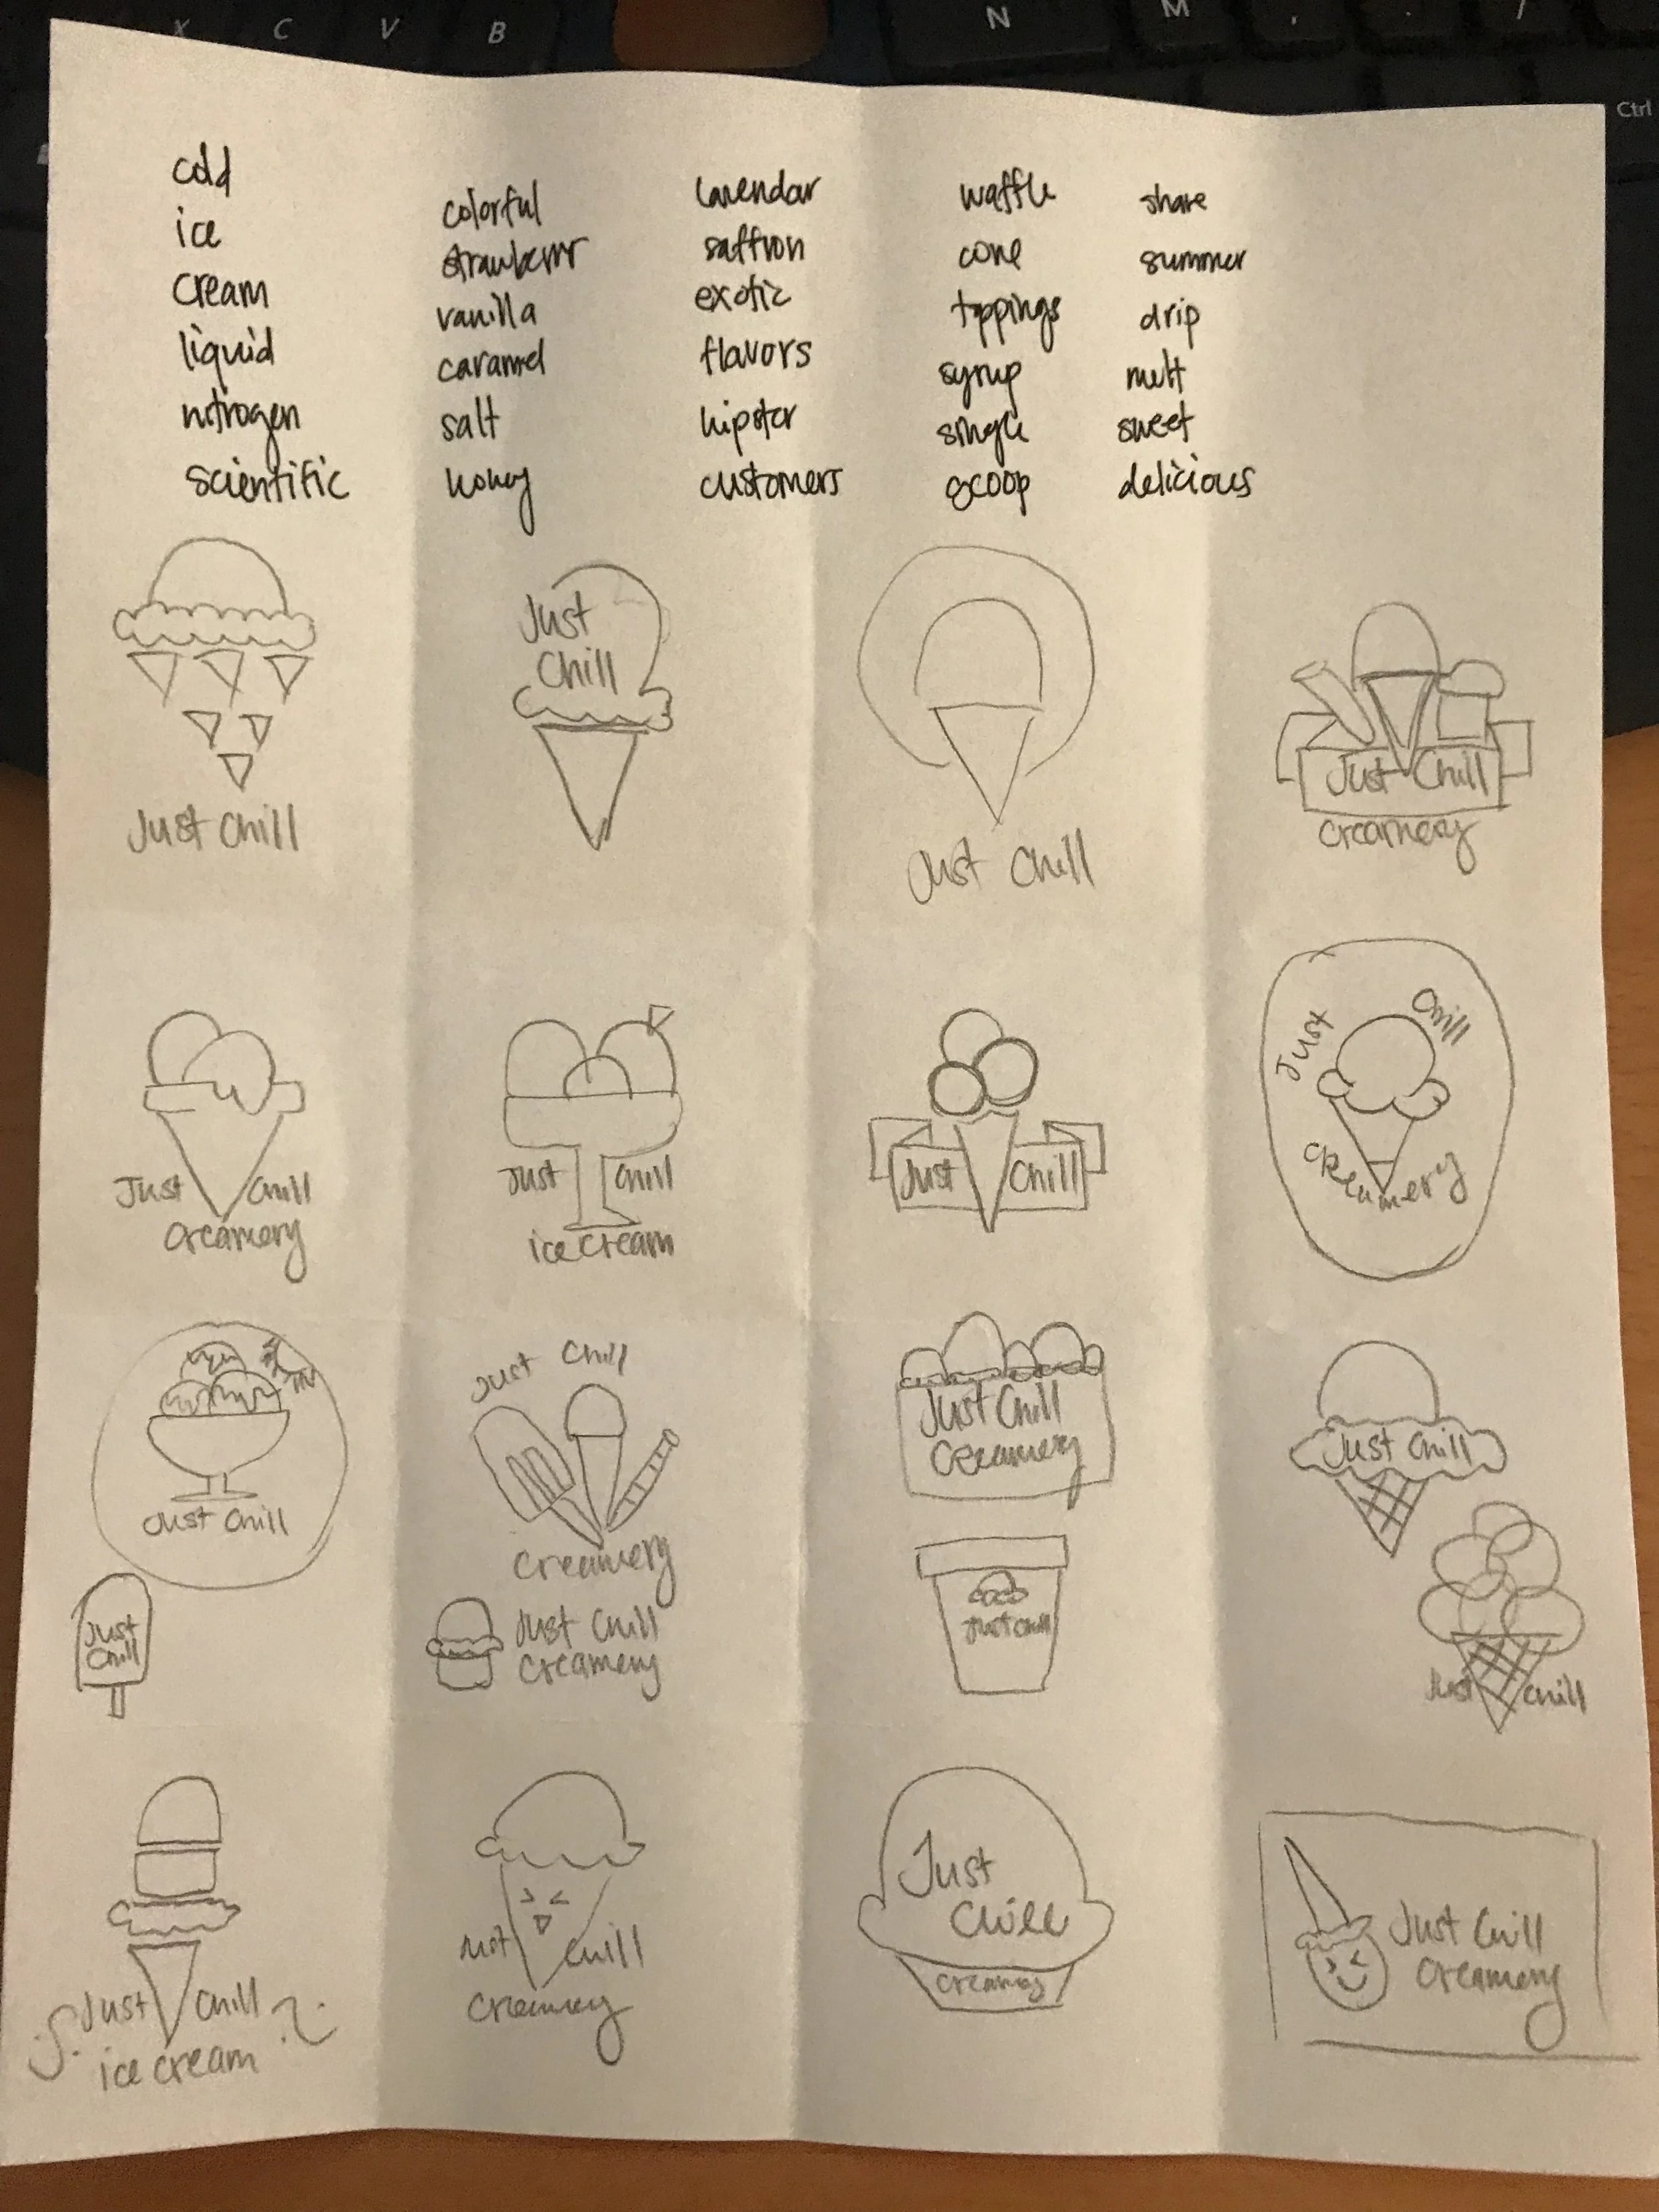 X C V B N M , . /
Ctrl
cold
ice
cream
liquid
nitrogen
scientific
colorful
strawberry
vanilla
caramel
salt
honey
lavendar
saffron
exotic
flavors
hipster
customers
waffle
cone
toppings
syrup
single
scoop
share
summer
drip
melt
sweet
delicious
Just Chill
Just
Chill
Just Chill
Just Chill
Creamery
Just Chill
Creamery
Just Chill
ice cream
Just Chill
Just Chill
Creamery
Just Chill
Just Chill
Creamery
Just Chill
Creamery
Just Chill
Just
Chill
Just Chill
Creamery
Just Chill
Just Chill
Just Chill
ice cream
Just Chill
Creamery
Just
Chill
Creamery
Just Chill
Creamery